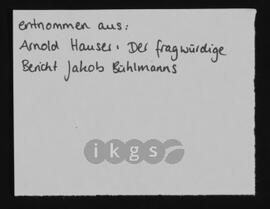 entnommen aus:
Arnold Hauser: Der fragwürdige
Bericht Jakob Bühlmanns
ikgs